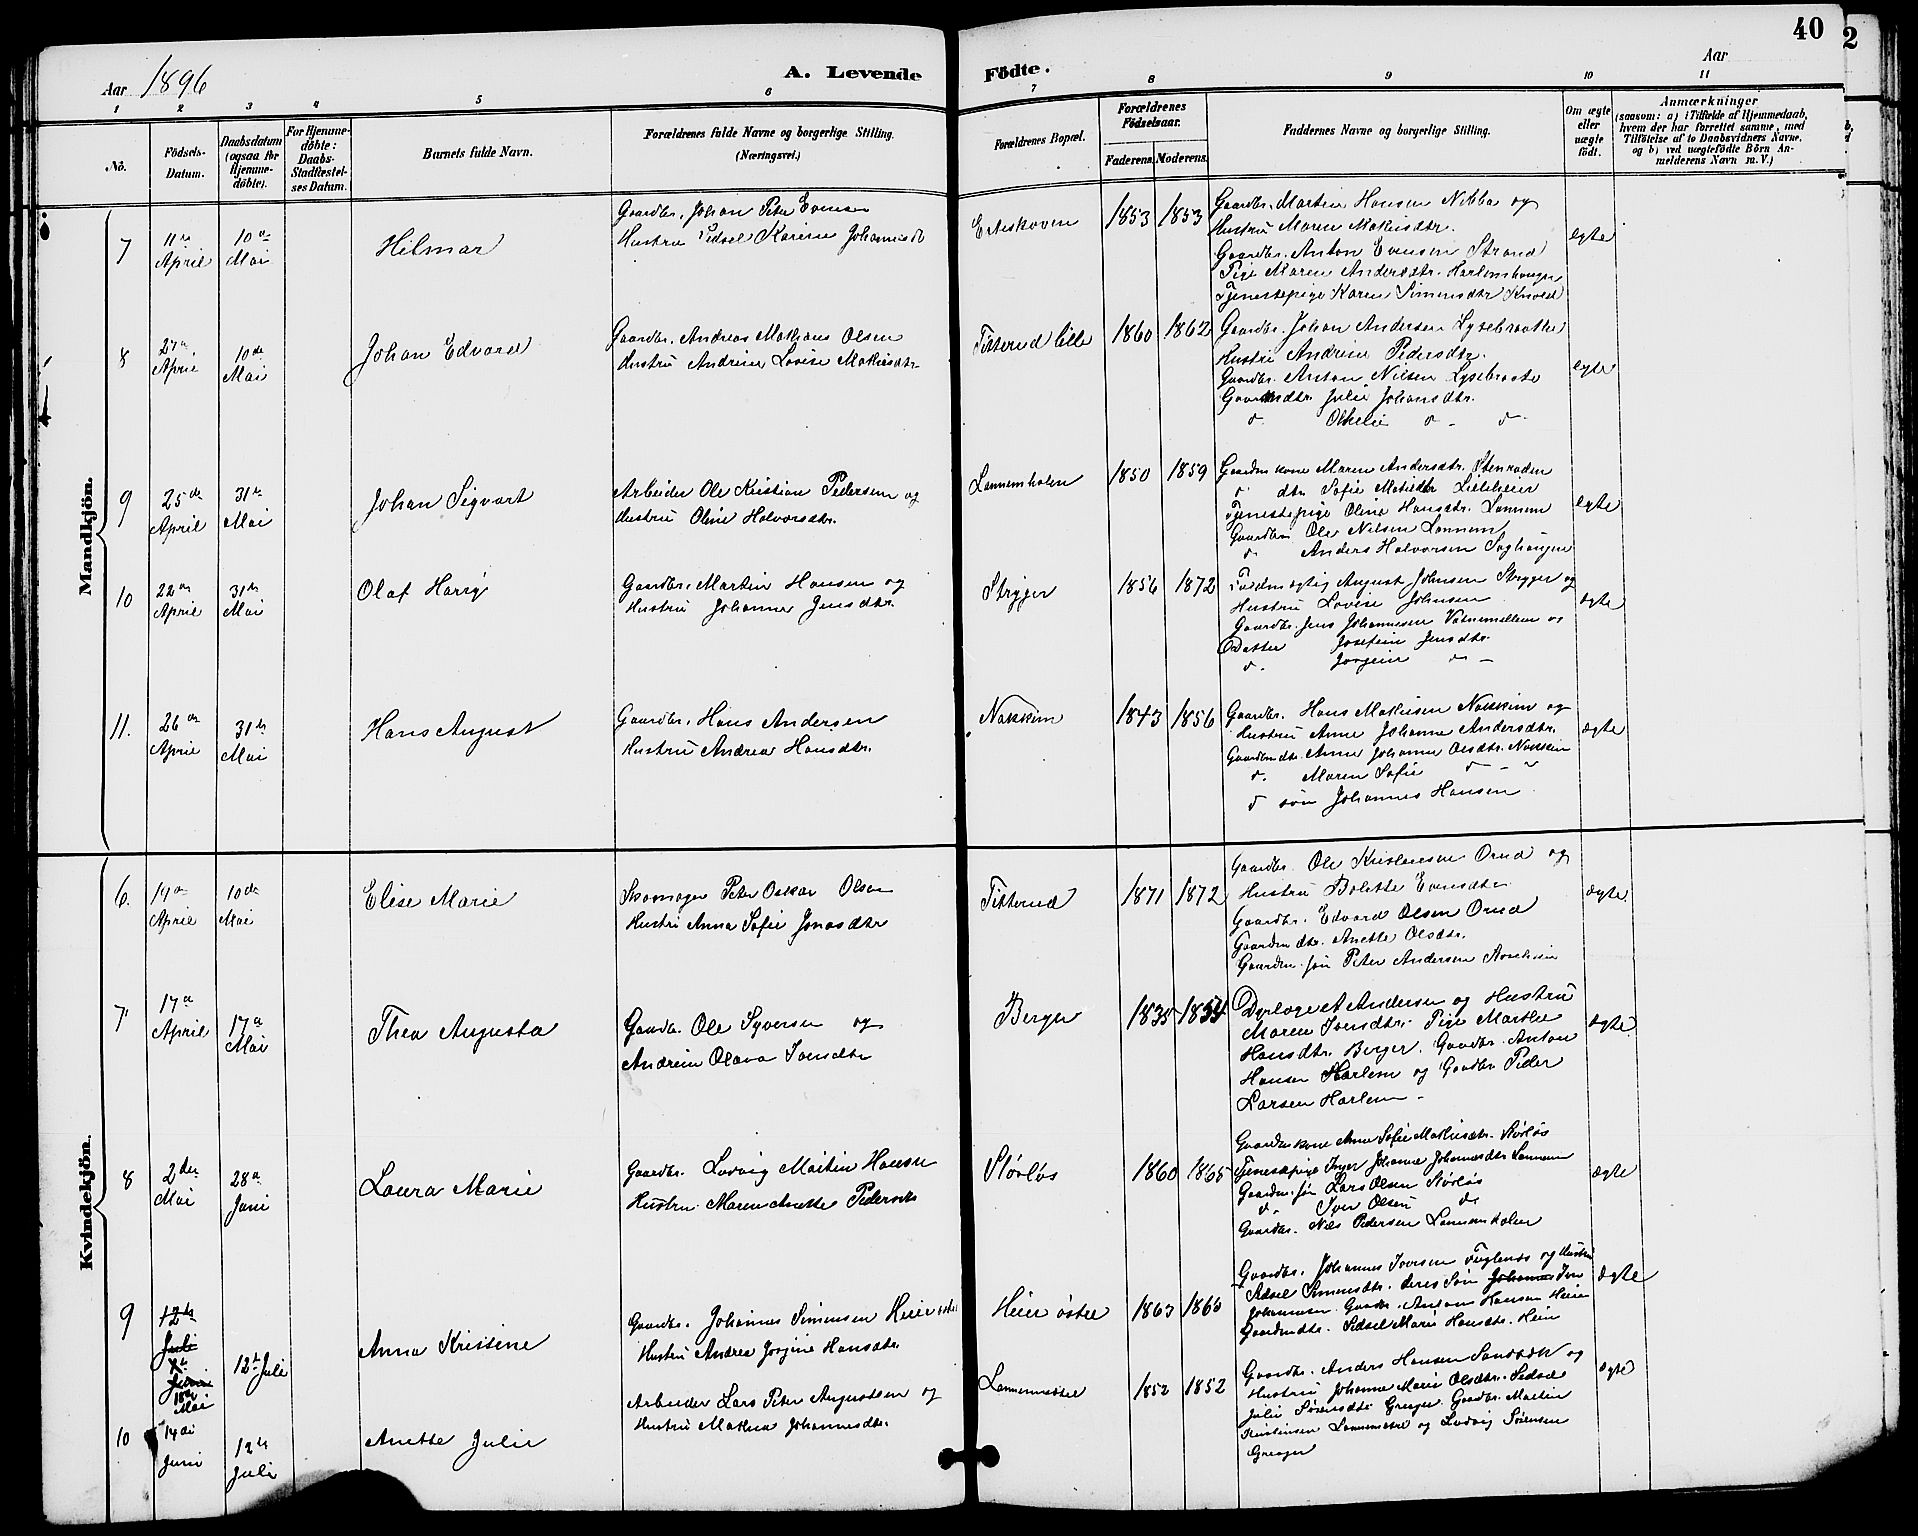 40
Aar 1896
A. Levende Födte.
Aar
1 2 3 4 5 6 7 8 9 10 11
No.
Födsels-Datum.
Daabsdatum (ogsaa for Hjemme-döbte).
For Hjemme-döbte: Daabs-Stadfæstel-ses Datum.
Barnets fulde Navn.
Forældrenes fulde Navne og borgerlige Stilling. (Næringsvei.)
Forældrenes Bopæl.
Forældrenes Födselsaar.
Faderens. Moderens.
Faddernes Navne og borgerlige Stilling.
Om ægte eller uægte født.
Anmærkninger
(saasom: a) i Tilfælde af Hjemmedaab, hvem der har forrettet samme, med Tilföielse af to Daabsvidners Navne, og b) ved uægtefödte Börn An-melderens Navn m. V.)
Mandkjön.
7 11te April 10de Mai Hilmar
Gaardbr. Johan Peter Evensen
Hustru Sidsel Karine Johannesdt
Erteskoven 1853 1853
Gaardbr. Martin Hansen Nibba og
Hustru Maren Mathisdtr.
Gaardbr. Anton Evensen Strand
Pige Maren Andersdtr. Harlemshaugen
Tjenestepige Karen Simensdtr
ægte
8 27de April 10de Mai Johan Edvard
Gaardbr. Andreas Mathias Olsen
Hustru Andrine Lovise Mathisdtr
Titterud lille 1860 1862
Gaardbr. Johan Andersen Lysebraate
Hustru Andrine Pedersdtr.
Gaardbr. Anton Nilsen Lysebraate
Gaardmdtr. Julie Johansdtr.
d. Othelie d - d.
ægte
9 25de April 31te Mai Johan Sigvart
Arbeider Ole Kristian Pedersen og
Hustru Oline Halvorsdtr.
Lannemholen 1850 1859
Gaardm kone Maren Andersdtr. Stenroden
d. dtr. Sofie Mathisdtr Lilleheier
Tjenestepige Oline Hansdtr. Lannem
Gaardbr Ole Nilsen Lannem
d. Anders Halvorsen Saghaugen
ægte
10 22de April 31te Mai Olaf Harry
Gaardbr. Martin Hansen og
Hustru Johanne Jensdtr.
Stryger 1856 1872
Fuldmægtig August Johnsen Stryger og
Hustru Lovise Johnsen
Gaardbr. Jens Johannesen og
Datter Josefine Jensdtr.
d. Jorgine d -
ægte
11. 26de April 31te Mai Hans August
Gaardbr. Hans Andersen
Hustru Andrea Hansdtr.
Nakkim 1843 1856
Gaardbr. Hans Mathisen Nakkim og
Hustru Anne Johanne Andersdtr.
Gaardmdtr. Anne Johanne Olsdtr. Nakkim
d. Maren Sofie d - d
d søn Johannes Hansen
ægte
Kvindekjön.
6. 14de April 10de Mai Elise Marie
Skomager Peter Oskar Olsen
Hustru Anna Sofie Jonasdtr
Titterud 1871 1872
Gaardbr. Ole Kristensen Orud og
Hustru Bolette Evensdtr
Gaardbr. Edvard Olsen Orud
Gaardmdtr. Anette Olsdtr.
Gaardm. søn Peter Andersen
ægte
7 17de April 17de Mai Thea Augusta
Gaardbr. Ole Syversen og
Andrine Olava Iversdtr
Berger 1835 1854
Dyrlæge A Andersen og Hustru
Maren Iversdtr. Pige Marthe
Hansdtr. Berger. Gaardbr. Anton
Hansen Harlem og Gaardbr Peder
Larsen Harlem -
ægte
8 2den Mai 28de Juni Laura Marie
Gaardbr. Ludvig Martin Hansen
Hustru. Maren Anette Pedersdtr
Størløs 1860 1865
Gaardm kone Anne Sofie Mathisdtr. Størløs
Tjenestepige Inger Johanne Johannesdtr Lannem
Gaardm. søn Lars Olsen Størløs
d. Iver Olsen do
Gaardbr. Nils Pedersen Lannemholen
ægte
9 12te Juli 7de Juni 18de Mai 12te Juli Anna Kristine
Gaardbr. Johannes Simensen Heier østre
Hustru Andrea Jorgine Hansdtr.
Heier østre 1863 1866
Gaardbr. Johannes Iversen Fuglenes og Hustru
Sidsel Simensdtr. deres Søn Johannes Iver
Johannesen. Gaardbr. Anton Hansen Heier
Gaardmdtr. Sidsel Marie Hansdtr. Heier
ægte
10 14de Juni 12te Juli Anette Julie
Arbeider Lars Peter Augustsen og
Hustru Mathea Johannesdtr.
Lannemestre 1852 1852
Gaardbr. Anders Hansen Sandbæk og
Hustru Johanne Marie Olsdtr. Sidsel
Julie Sørensdtr Greager. Gaardbr. Martin
Kristiansen Lannemstre og Ludvig Sørensen
Greager
ægte